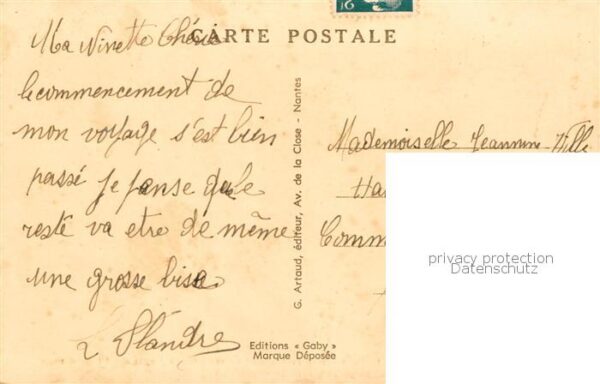 CARTE POSTALE
Ma Ninette Chérie
le commencement de
mon voyage s'est bien
passé je panse que le
reste va etre de même
une grosse bise.
Editions « Gaby »
Marque Déposée
G. Artaud, éditeur, Av. de la Close - Nantes
Mademoiselle
privacy protection
Datenschutz